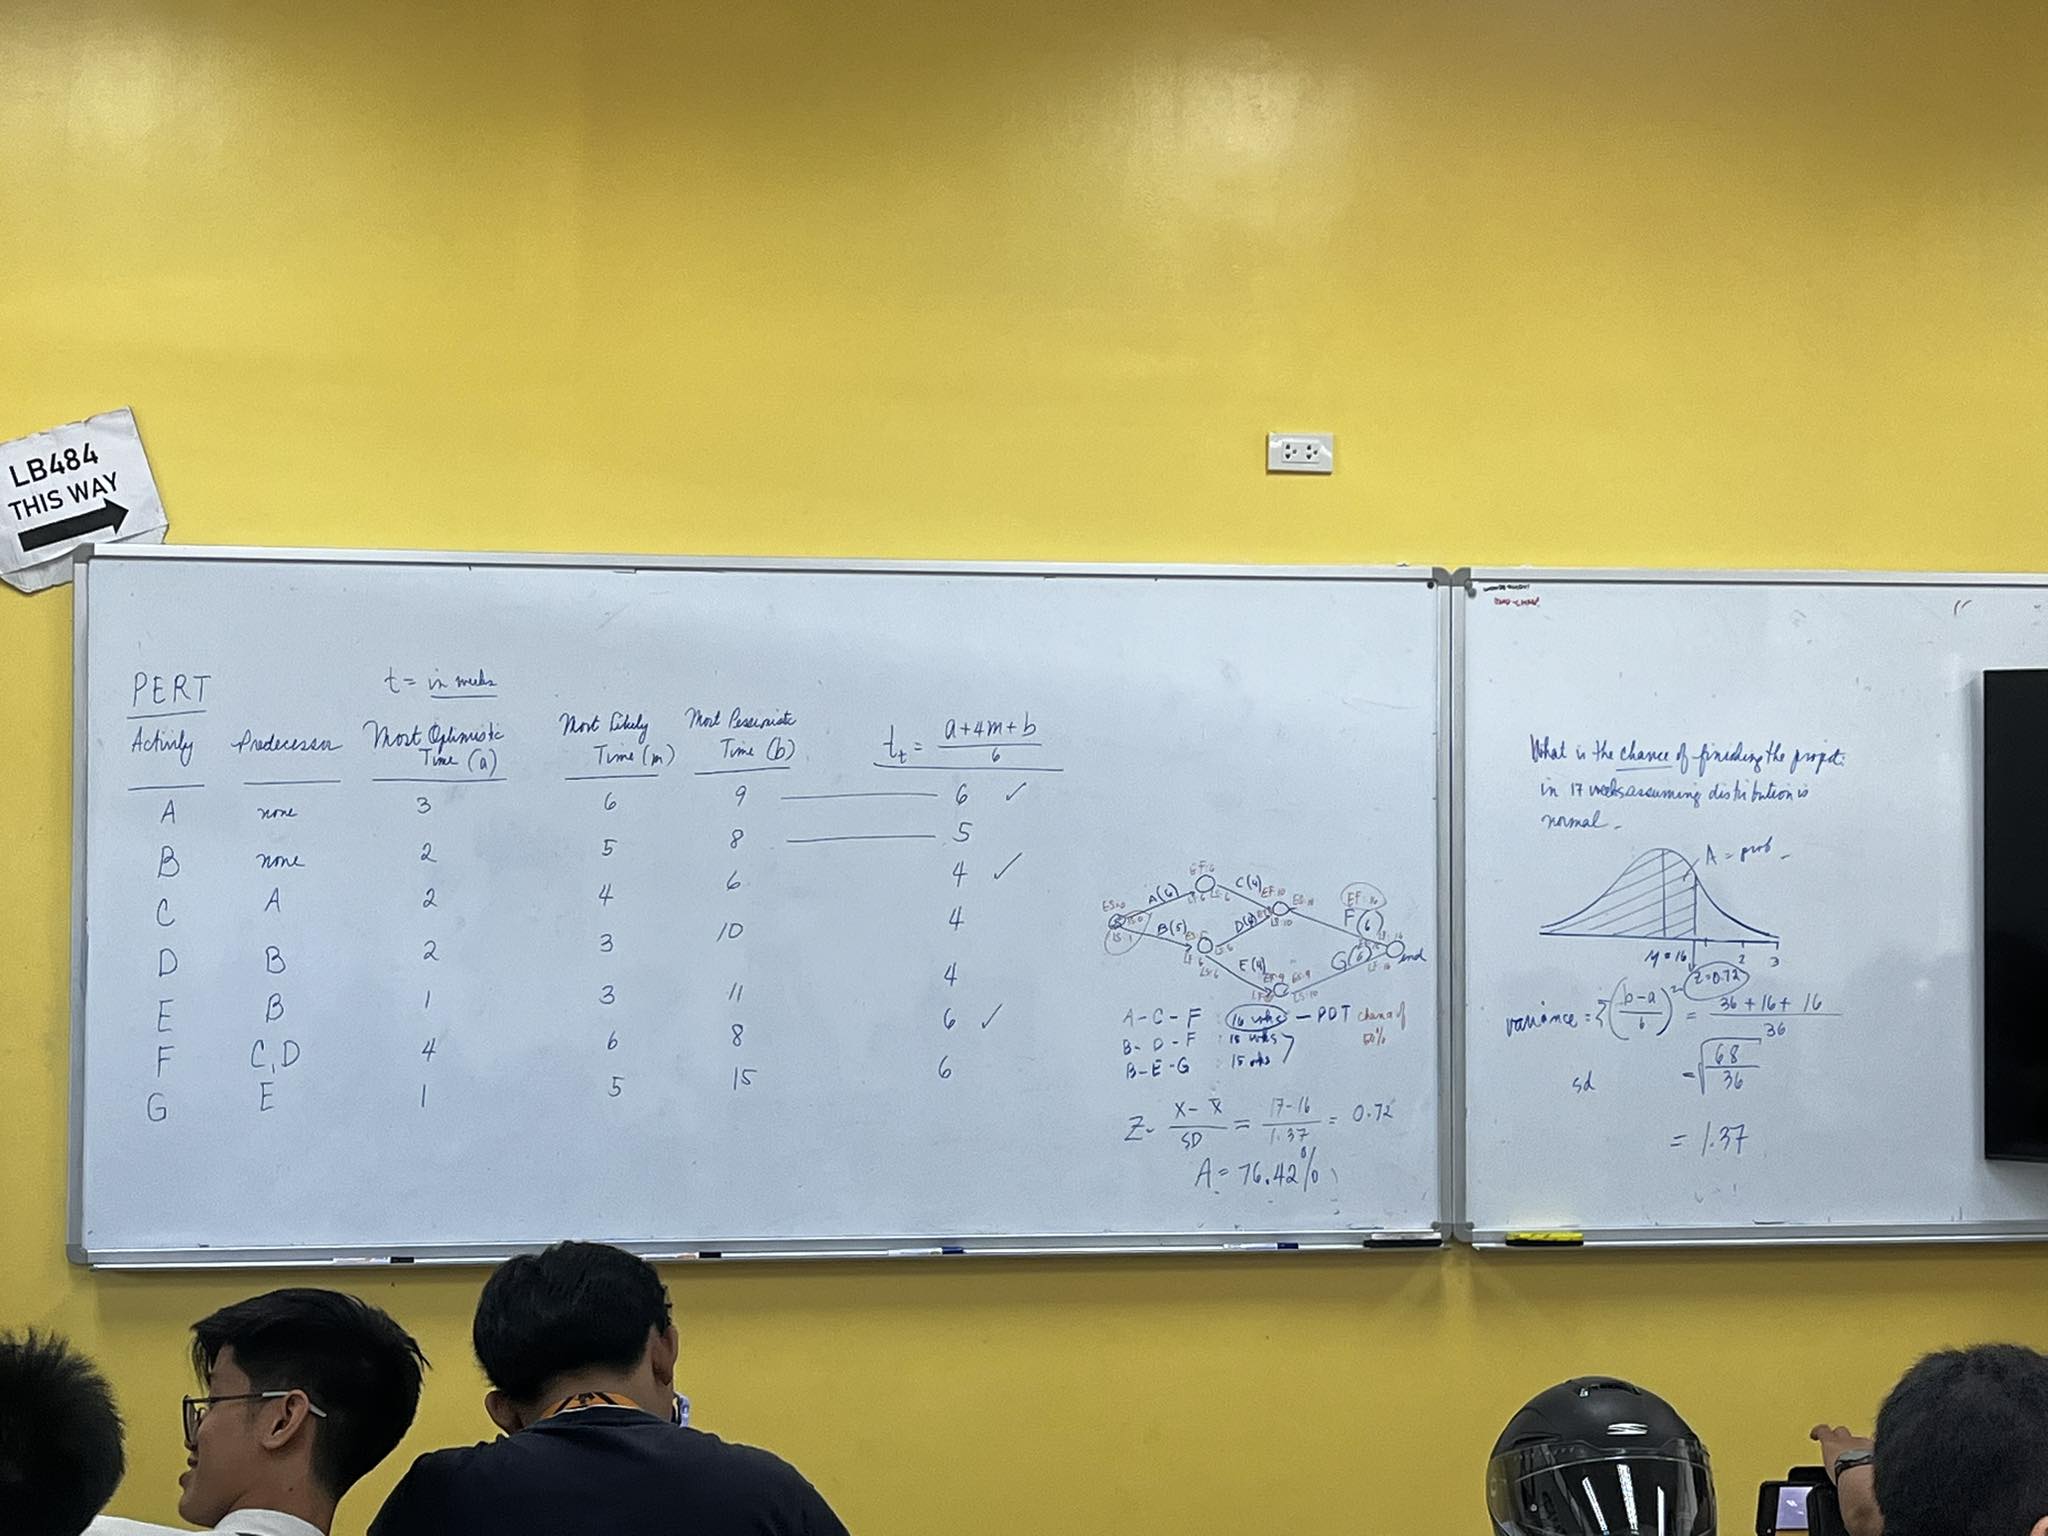 LB484
THIS WAY
PERT
t = in weeks
Activity Predecessor Most Optimistic Time (a) Most Likely Time (m) Most Pessimistic Time (b) tt = a+4m+b / 6
A none 3 6 9 6 ✓
B none 2 5 8 5
C A 2 4 6 4 ✓
D B 2 3 10 4
E B 1 3 11 4
F C,D 4 6 8 6 ✓
G E 1 5 15 6
A(6) C(4) F(6)
B(5) D(4)
E(4) G(6) end
A-C-F : 16 wks - PDT chance of 50%
B-D-F : 15 wks
B-E-G : 15 wks
Z = X - X̄ / SD = 17-16 / 1.37 = 0.72
A = 76.42%
What is the chance of finishing the project
in 17 weeks assuming distribution is
normal.
A = prob
μ = 16 2 3
z=0.72
variance = Σ(b-a / 6)² = 36+16+16 / 36
sd = √68/36
= 1.37